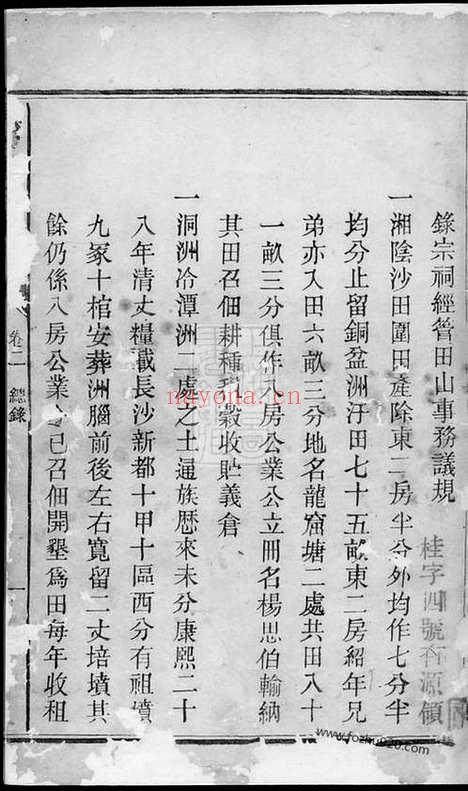 桂字四號香源領
錄宗祠經管田山事務議規
一湘陰沙田圍田產除東二房半分外均作七分半
均分止留銅盆洲汙田七十五畝東二房紹年兄
弟亦入田六畝三分地名龍窟塘二處共田八十
一畝三分俱作八房公業公立冊名楊思伯輸納
其田召佃耕種租穀收貯義倉
一洞洲冷潭洲二處之土通族歷來未分康熙二十
八年清丈糧載長沙新都十甲十區西分有祖墳
九冢十棺安葬洲腦前後左右寬留二丈培墳其
餘仍係八房公業已召佃開墾爲田每年收租
卷二
總錄
nayona.cn
www.fozhu920.com